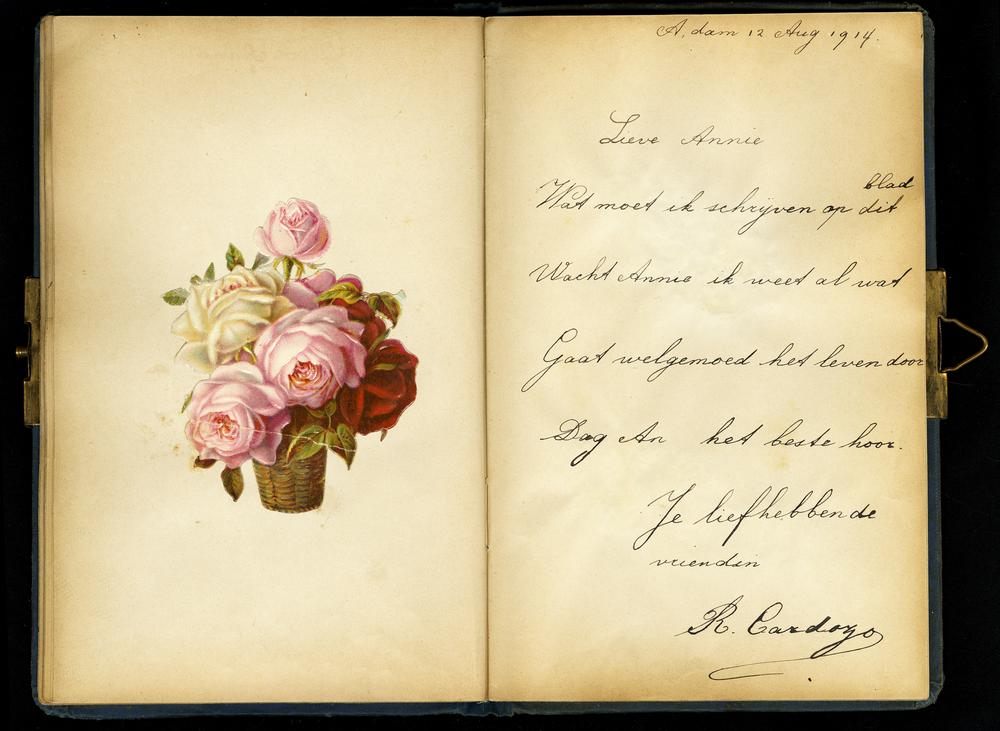 A,dam 12 Aug 1914.
Lieve Annie
Wat moet ik schrijven op dit blad
Wacht Annie ik weet al wat
Gaat welgemoed het leven door
Dag An het beste hoor.
Je liefhebbende
vriendin
R. Cardozo